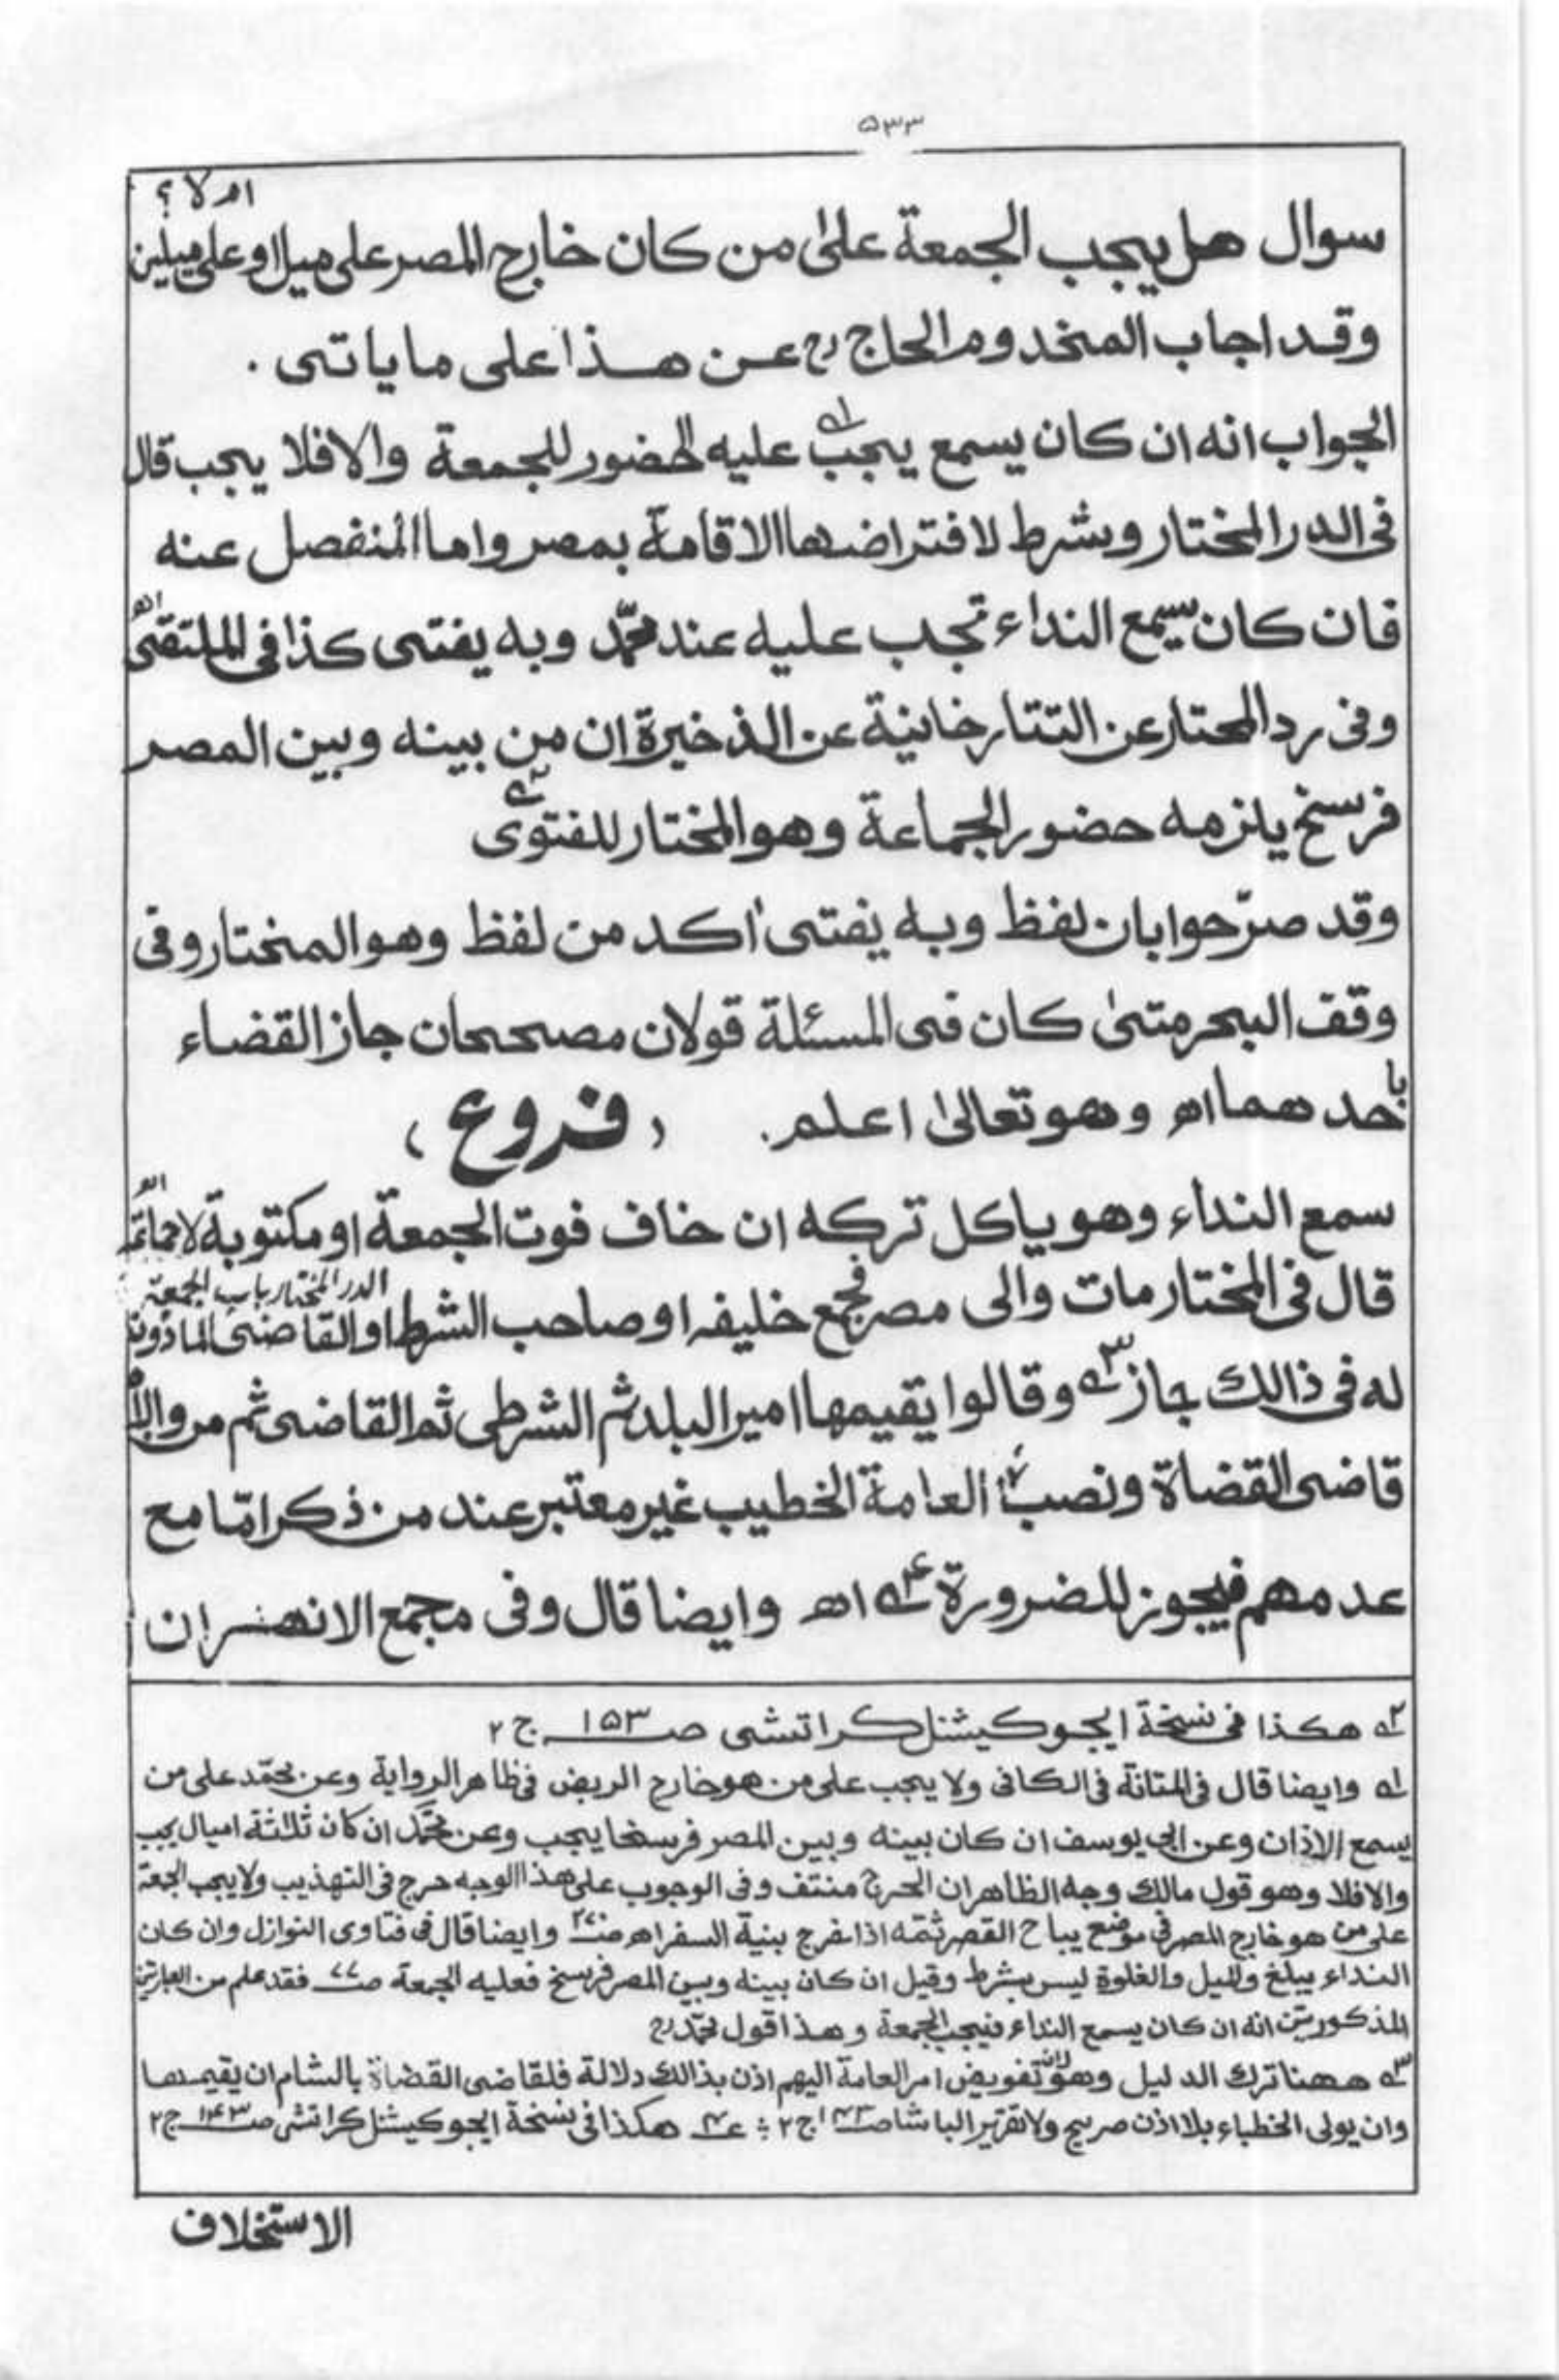 ۵۳۳
سوال هل يجب الجمعة علىٰ من كان خارج المصر على ميل او على ميلين ام لا ؟
وقد اجاب المخدوم الحاج رح عن هذا على ما ياتى .
الجواب انه ان كان يسمع يجب ١ عليه الحضور للجمعة والا فلا يجب قال
فى الدر المختار وشرط لافتراضها الاقامة بمصر واما المنفصل عنه
فان كان يسمع النداء تجب عليه عند محمّد وبه يفتى كذا فى الملتقى اھ
وفى رد المحتار عن التتارخانية عن الذخيرة ان من بينه وبين المصر
فرسخ يلزمه حضور الجماعة وهو المختار للفتوى ٢
وقد صرّحوا بان لفظ وبه يفتى اٰكد من لفظ وهو المختار وفى
وقف البحر متىٰ كان فى المسئلة قولان مصححان جاز القضاء
باحدهما اھ وهو تعالىٰ اعلم . ( فروع )
سمع النداء وهو ياكل تركه ان خاف فوت الجمعة او مكتوبة لا جماعة اھ
الدر المختار باب الجمعة
قال فى المختار مات والى مصر فجمع خليفه او صاحب الشرط او القاضى الماذون
له فى ذالك جاز ٣ وقالوا يقيمها امير البلد ثم الشرطى ثم القاضى ثم من ولاه
قاضى القضاة ونصب العامة الخطيب غير معتبر عند من ذكر امّا مع
عدمهم فيجوز للضرورة ٤ اھ وايضا قال وفى مجمع الانهر ان
٢ هكذا فى نسخة ايجوكيشنل كراتشى صـ ۱۵۳ ج ٢
١ وايضا قال فى المتانة فى الكافى ولا يجب على من هو خارج الربض فى ظاهر الرواية وعن محمّد على من
يسمع الاذان وعن ابى يوسف ان كان بينه وبين المصر فرسخا يجب وعن محمّد ان كان ثلاثة اميال يجب
والا فلا وهو قول مالك وجه الظاهر ان الحرج منتف وفى الوجوب على هذا الوجه حرج فى التهذيب ولا يجب الجمعة
على من هو خارج المصر فى موضع يباح القصر ثمّه اذا خرج بنية السفر اھ وايضا قال فى فتاوى النوازل وان كان
النداء يبلغ والميل والغلوة ليس بشرط وقيل ان كان بينه وبين المصر فرسخ فعليه الجمعة صـ ۷۷ فقد علم من العبارتين
المذكورتين انه ان كان يسمع النداء فيجب الجمعة وهذا قول محمّد رح
٣ ههنا ترك الدليل وهو لان تفويض امر العامة اليهم اذن بذالك دلالة فلقاضى القضاة بالشام ان يقيمها
وان يولى الخطباء بلا اذن صريح ولا تقرير الباشا صـ ج ٢ ؛ ٤ هكذا فى نسخة ايجوكيشنل كراتشى صـ ۱۴۳ ج ٢
الاستخلاف